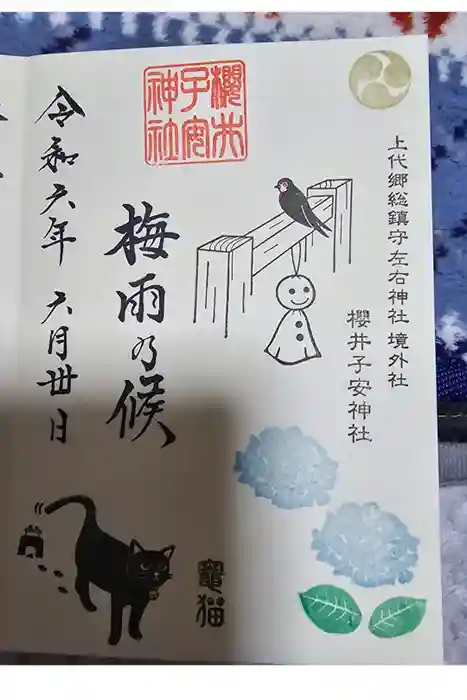 上代郷総鎮守左右神社 境外社
櫻井子安神社
櫻井
子安
神社
梅雨乃候
令和六年 六月卅日
竈猫